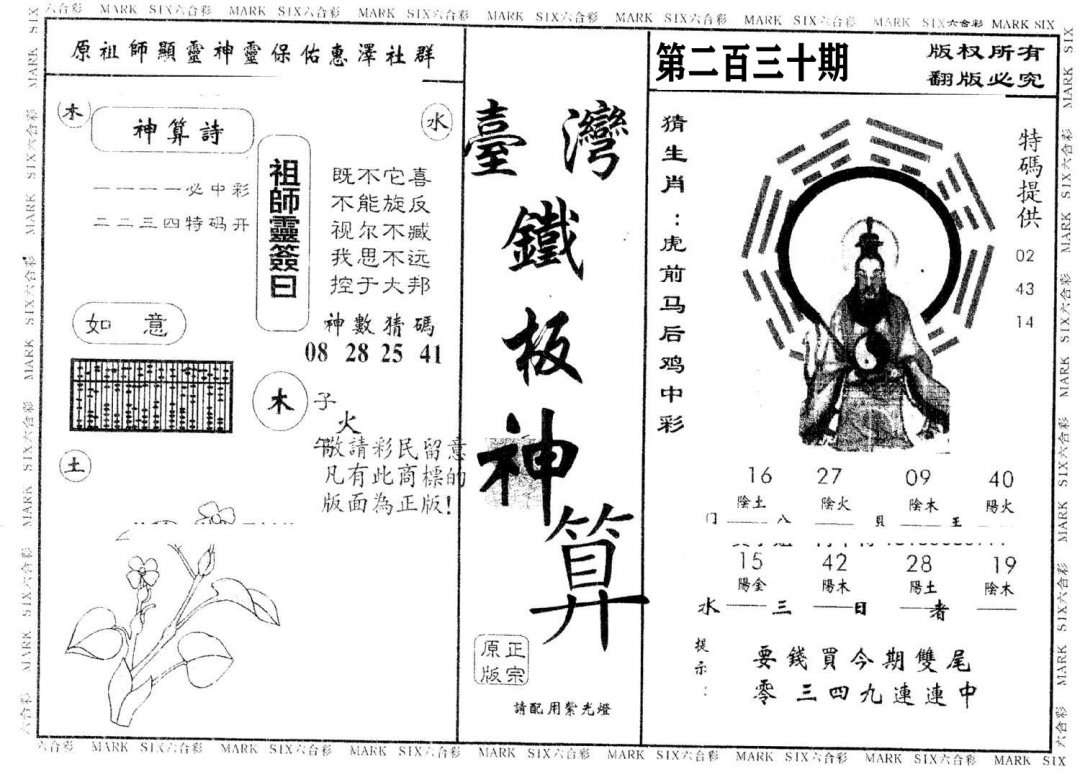 MARK SIX六合彩 MARK SIX六合彩 MARK SIX六合彩 MARK SIX六合彩 MARK SIX六合彩 MARK SIX六合彩 MARK SIX六合彩 MARK SIX
原祖師顯靈神靈保佑惠澤社群
木
神算詩
水
一一一一必中彩
二二三四特码开
祖師靈簽曰
既不它喜
不能旋反
视尔不臧
我思不远
控于大邦
神數猜碼
08 28 25 41
如意
木
子
火
午
敬請彩民留意
凡有此商標的
版面為正版!
土
臺灣
鐵
板
神
算
原正
版宗
請配用紫光燈
第二百三十期
版权所有
翻版必究
猜生肖:虎前马后鸡中彩
特碼提供
02
43
14
16 27 09 40
陰土 陰火 陰木 陽火
门 八 貝 王
15 42 28 19
陽金 陽木 陽土 陰木
水 三 日 者
提示:
要錢買今期雙尾
零三四九連連中
六合彩 MARK SIX六合彩 MARK SIX六合彩 MARK SIX六合彩 MARK SIX六合彩 MARK SIX六合彩 MARK SIX六合彩 MARK SIX六合彩 MARK SIX